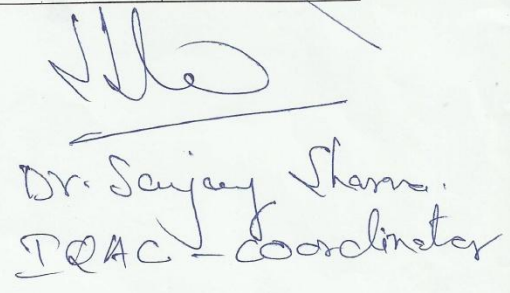 Dr. Sanjay Sharma.
IQAC - Coordinator